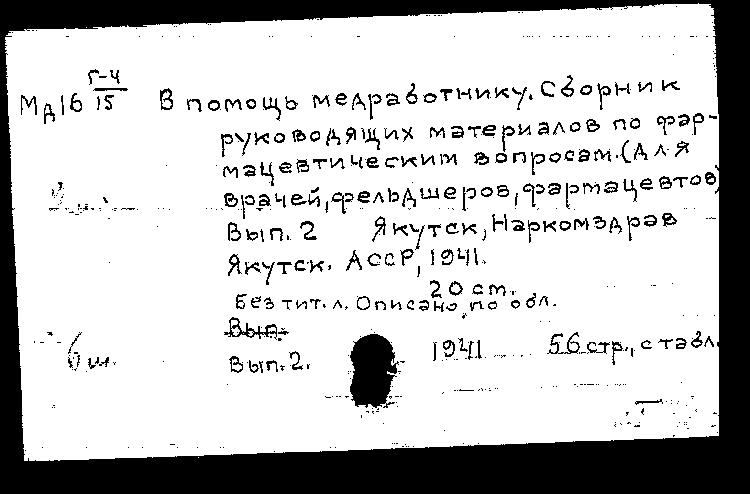 Г-4
Мд16 15 В помощь медработнику. Сборник
руководящих материалов по фар-
мацевтическим вопросам. (Для
врачей, фельдшеров, фармацевтов)
Вып. 2 Якутск, Наркомздрав
Якутск. АССР, 1941.
20 ст.
Без тит. л. Описано по обл.
Вып.
6 ш. Вып. 2. 1941 56 стр., с табл.